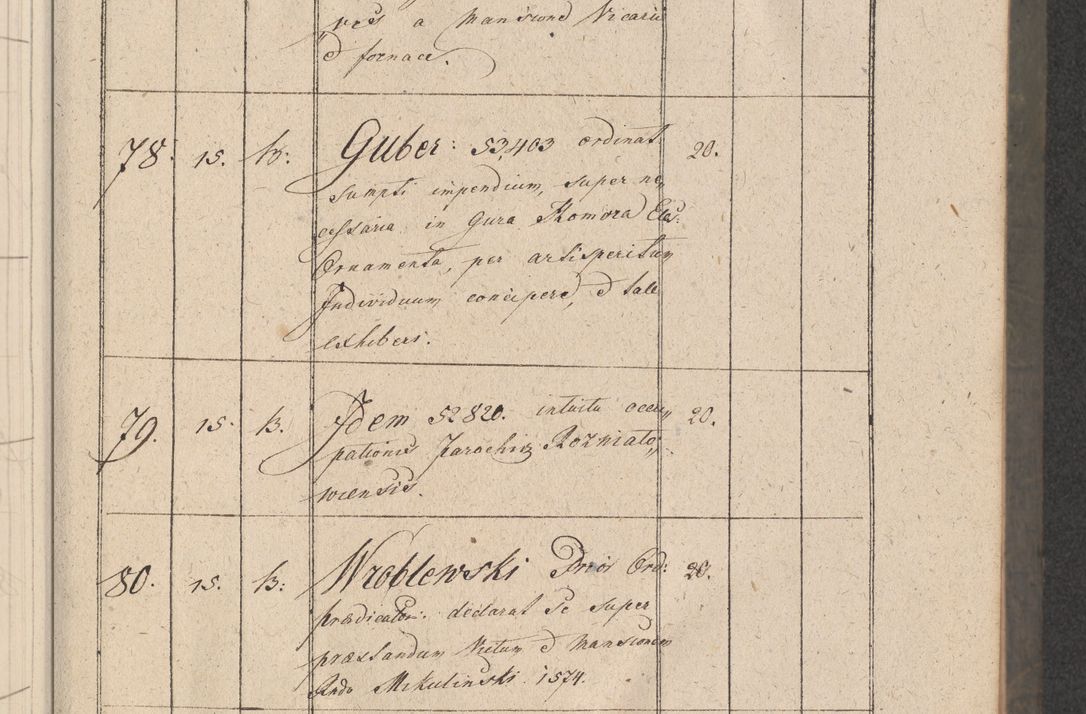 ves a Mansione Vicarii
& fornace.
78. 15. h: Guber: 53,403 ordinat 20.
sumpti impendium, super ne„
cessaria in Gura Komora Ecs:
Ornamenta, per artisperitum
Individuum concipere, & tale
exhiberi.
79. 15. h. Idem 52820. intuitu occu„ 20.
pationis Parochiæ Rozniato„
wiensis.
80. 15. h: Wroblewski Prior Ord: 20.
prædicator: declarat se super
præstandum Victum & Mansionem
Rndo Mikulinski. 1574.